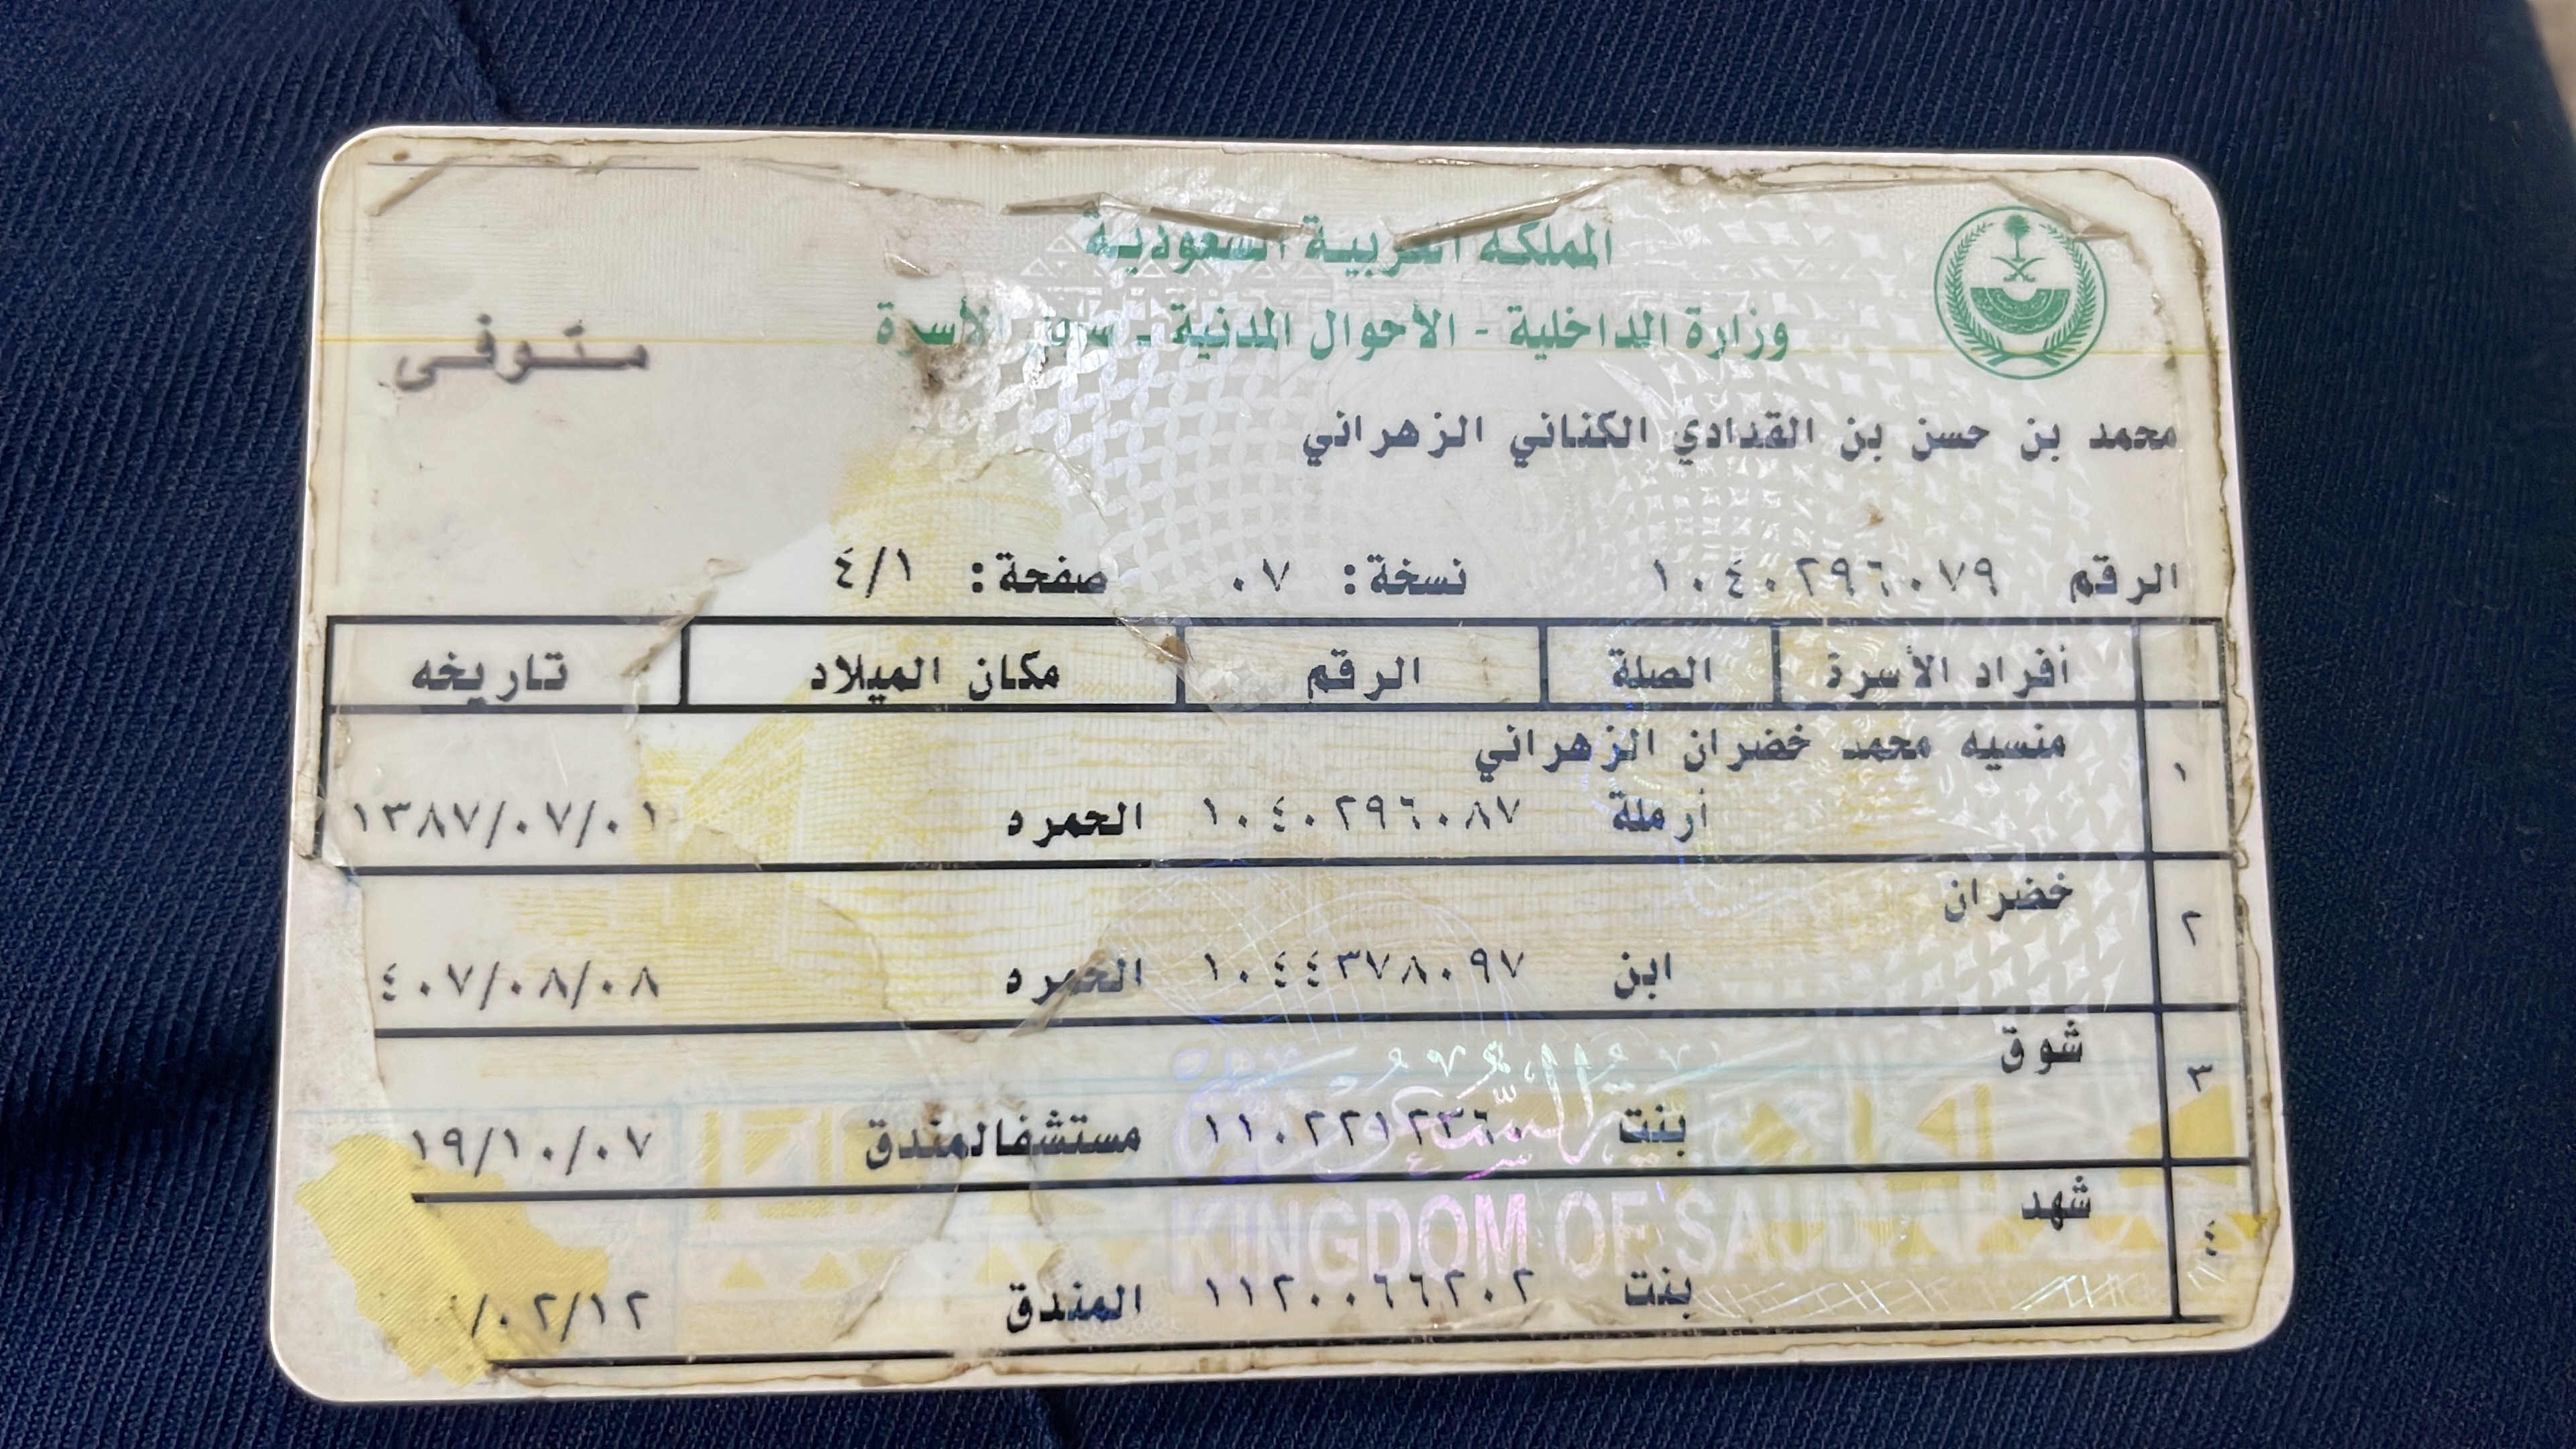 المملكة العربية السعودية
وزارة الداخلية - الأحوال المدنية - سجل الأسرة
متوفى
محمد بن حسن بن القدادي الكناني الزهراني
الرقم ١٠٤٠٢٩٦٠٧٩ نسخة: ٠٧ صفحة: ٤/١
أفراد الأسرة الصلة الرقم مكان الميلاد تاريخه
١ منسيه محمد خضران الزهراني
أرملة ١٠٤٠٢٩٦٠٨٧ الحمره ١٣٨٧/٠٧/٠١
٢ خضران
ابن ١٠٤٤٣٧٨٠٩٧ الحمره ٤٠٧/٠٨/٠٨
٣ شوق
بنت ١١٠٢٢١٢٣٦٠ مستشفالمندق ١٩/١٠/٠٧
٤ شهد
بنت ١١٢٠٠٦٦٢٠٢ المندق /٠٢/١٢
KINGDOM OF SAUDI